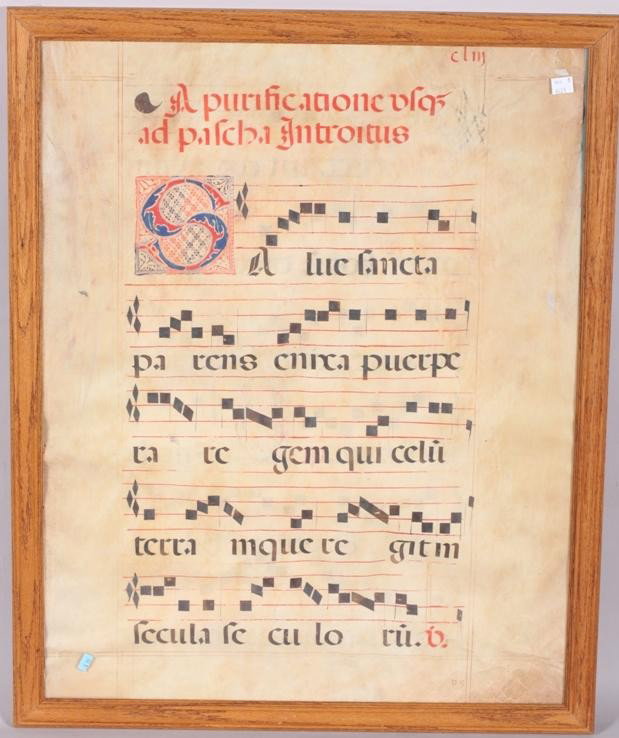 cliij
A purificatione vsqꝫ
ad pascha Introitus
SA lue sancta
pa rens enixa puerpe
ra re gem qui celū
terra mque re git in
secula se cu lo rū. ℣.